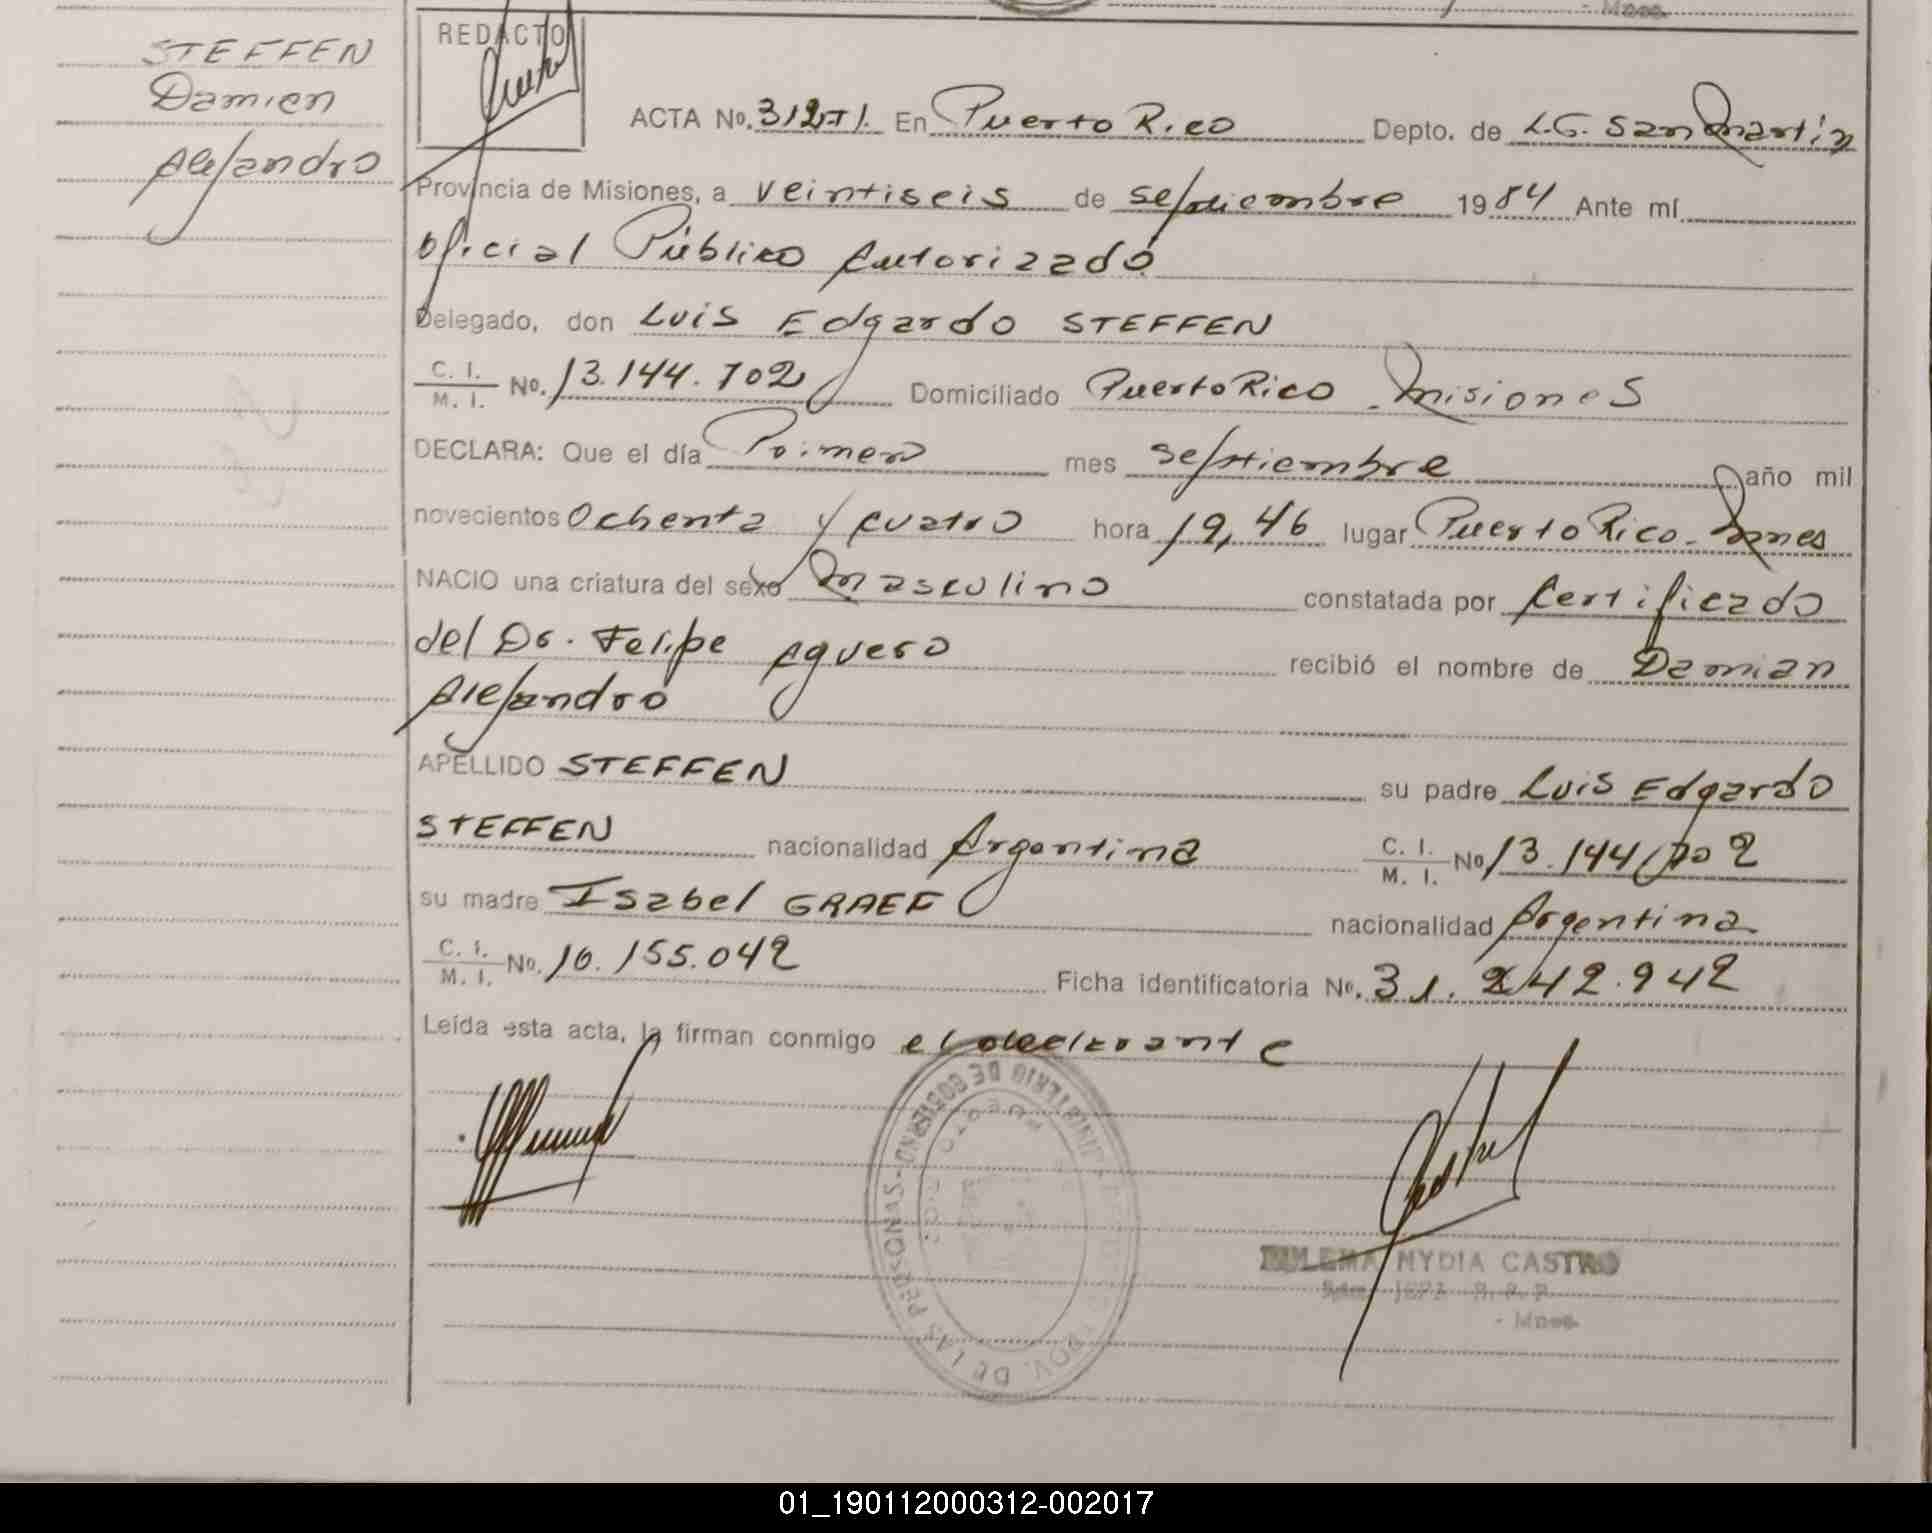 STEFFEN
Damien
Alejandro
REDACTO
ACTA No. 312-TI. En Puerto Rico Depto. de L.G. San Martín
Provincia de Misiones, a veintiseis de septiembre 1984 Ante mí
Oficial Público Autorizado
Delegado, don Luis Edgardo STEFFEN
C. I. / M. I. No. 13.144.702 Domiciliado Puerto Rico - Misiones
DECLARA: Que el día Primero mes septiembre año mil
novecientos Ochenta y cuatro hora 19,46 lugar Puerto Rico - Mnes
NACIO una criatura del sexo Masculino constatada por Certificado
del Dr. Felipe Aguero recibió el nombre de Damian
Alejandro
APELLIDO STEFFEN su padre Luis Edgardo
STEFFEN nacionalidad Argentina C. I. / M. I. No 13.144.702
su madre Isabel GRAEF nacionalidad Argentina
C. I. / M. I. No. 16.155.042 Ficha identificatoria No. 31.242.942
Leída esta acta, la firman conmigo el declarante
MINISTERIO DE GOBIERNO
PROV. DE LAS PERSONAS
PUERTO RICO
NYDIA CASTRO
- Mnes.
01_190112000312-002017